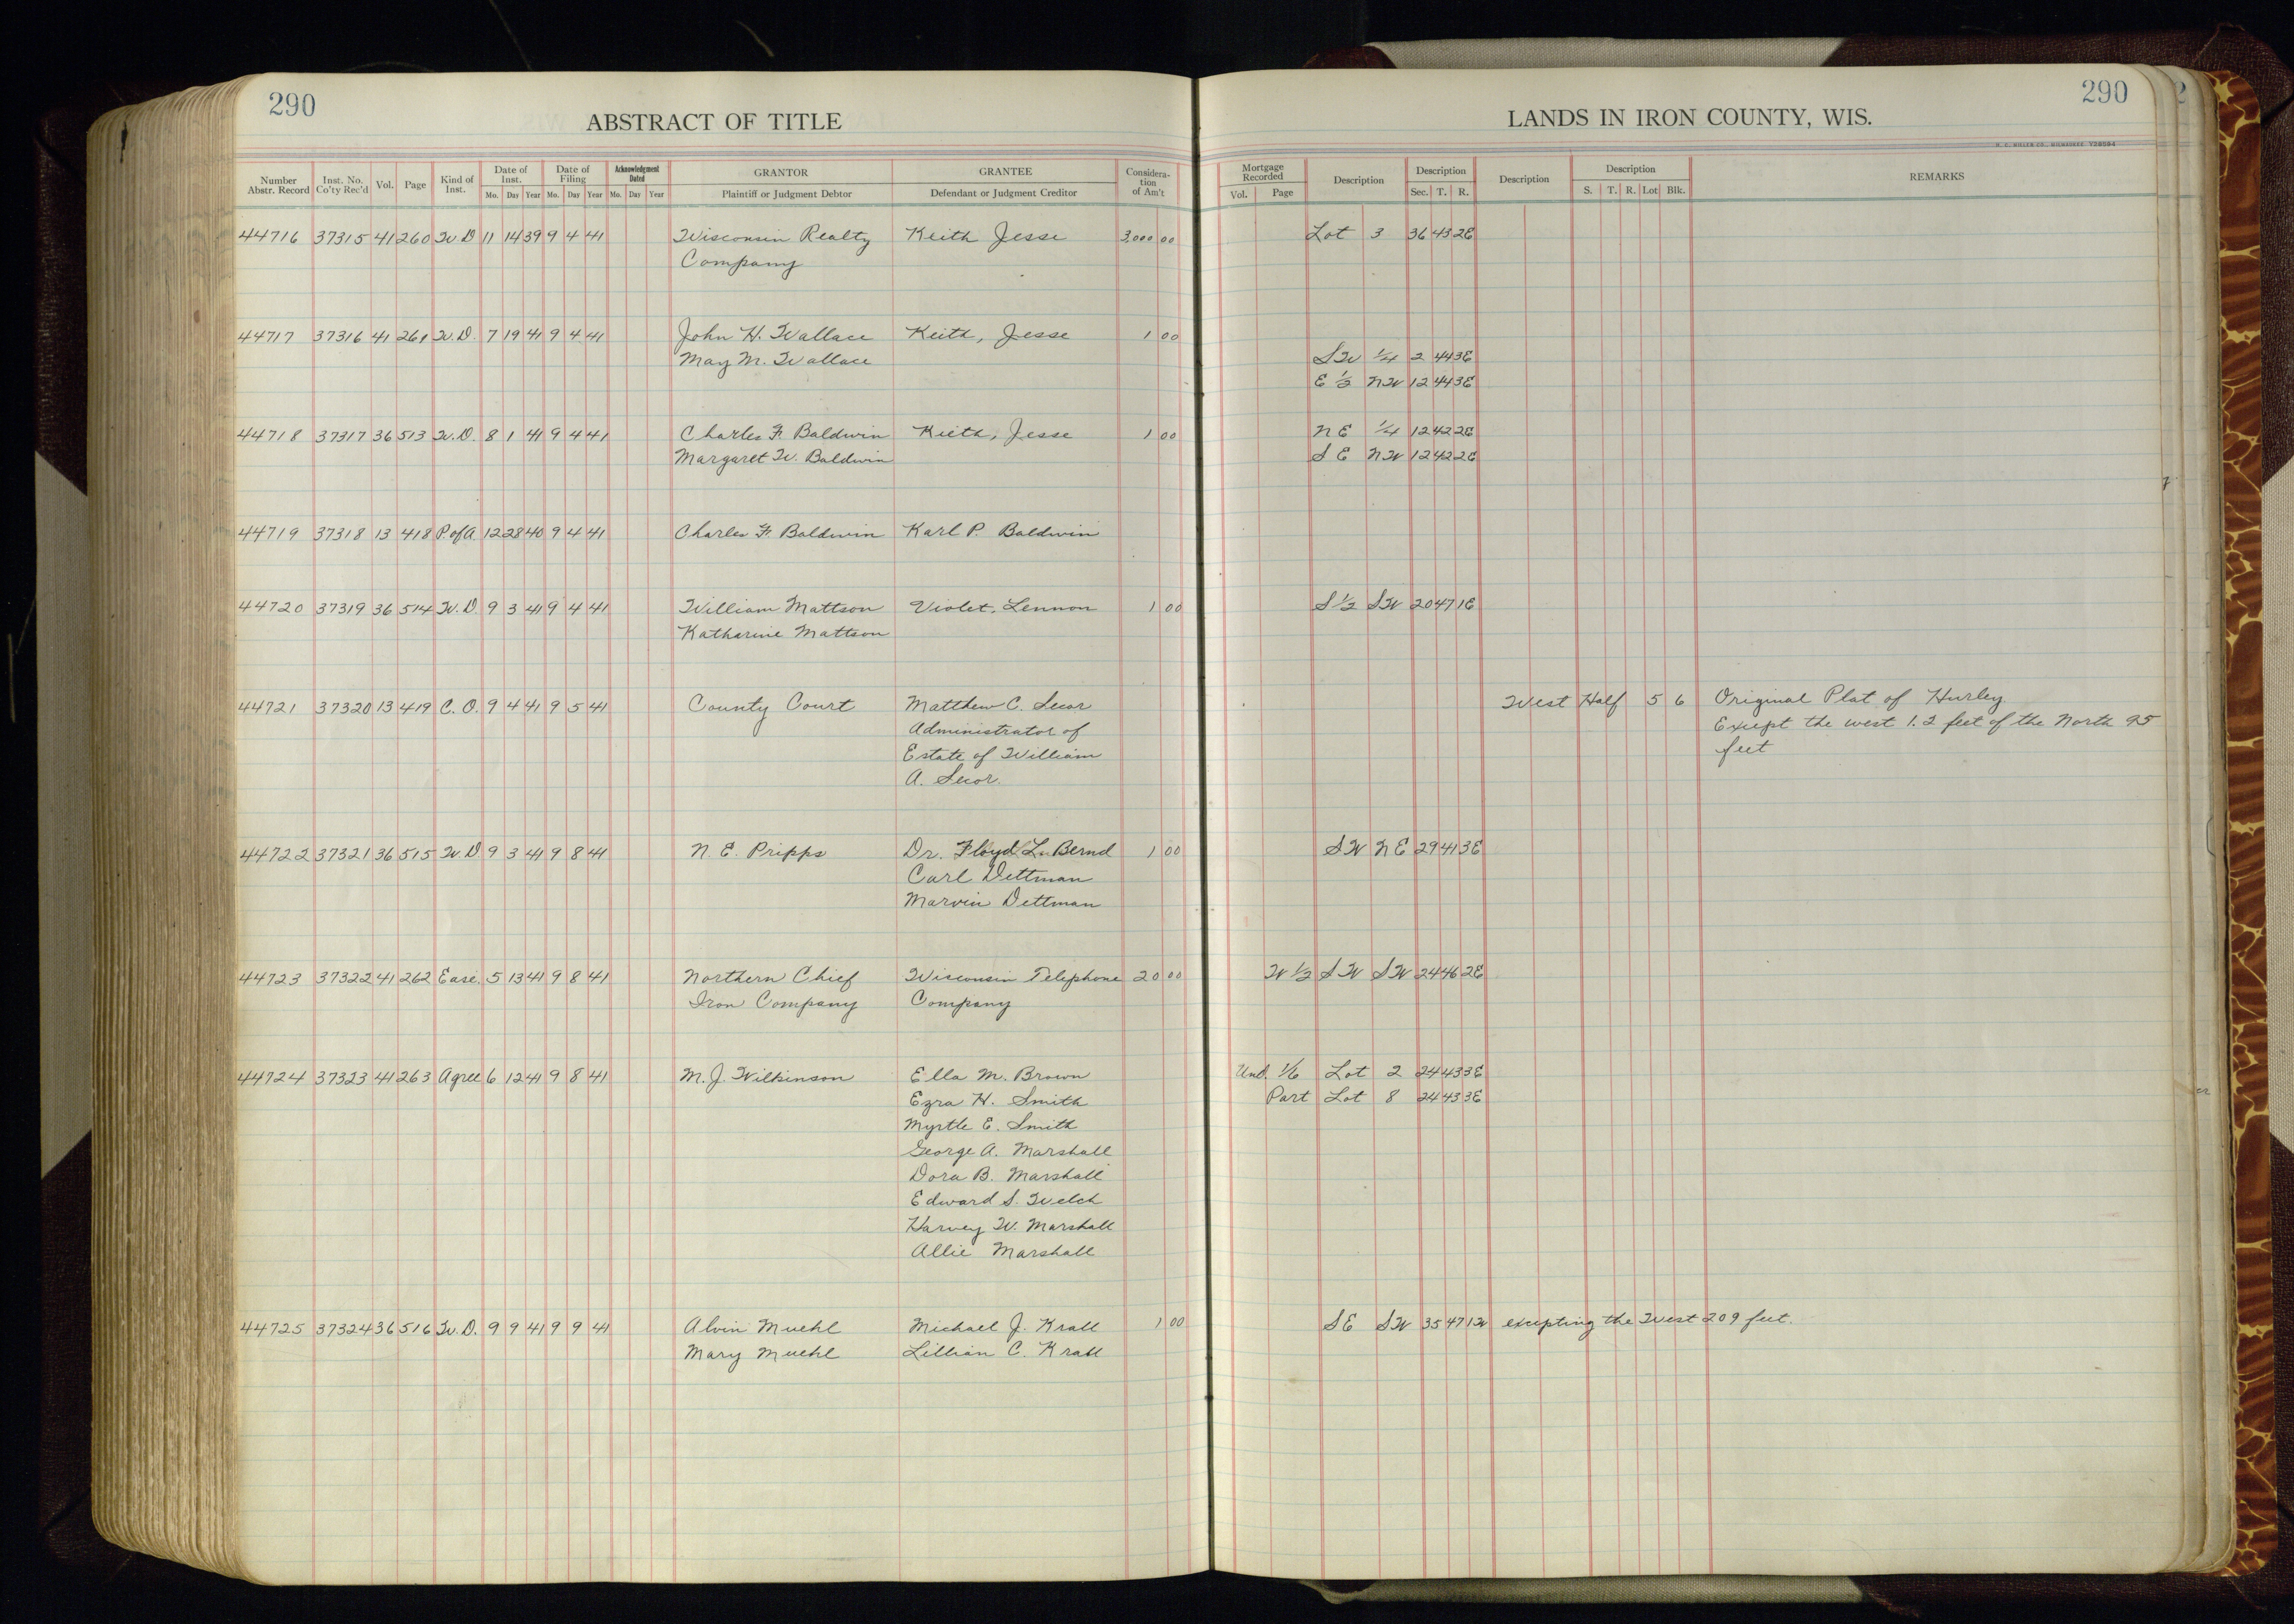 290
ABSTRACT OF TITLE
Number Abstr. Record Inst. No. Co'ty Rec'd Vol. Page Kind of Inst. Date of Inst. Mo. Day Year Date of Filing Mo. Day Year Acknowledgment Dated Mo. Day Year GRANTOR Plaintiff or Judgment Debtor GRANTEE Defendant or Judgment Creditor Considera-tion of Am't
LANDS IN IRON COUNTY, WIS.
290
H. C. MILLER CO., MILWAUKEE Y28594
Mortgage Recorded Vol. Page Description Description Sec. T. R. Description Description S. T. R. Lot Blk. REMARKS
44716 37315 41 260 W.D 11 14 39 9 4 41 Wisconsin Realty Keith Jesse 3,000 00 Lot 3 36 43 2E
Company
44717 37316 41 261 W.D. 7 19 41 9 4 41 John H. Wallace Keith, Jesse 1 00
May M. Wallace SW 1/4 2 44 3E
E 1/2 NW 12 44 3E
44718 37317 36 513 W.D. 8 1 41 9 4 41 Charles F. Baldwin Keith, Jesse 1 00 NE 1/4 12 42 2E
Margaret W. Baldwin SE NW 12 42 2E
44719 37318 13 418 P.of A. 12 28 40 9 4 41 Charles F. Baldwin Karl P. Baldwin
44720 37319 36 514 W.D. 9 3 41 9 4 41 William Mattson Violet, Lennon 1 00 S 1/2 SW 20 47 1E
Katharine Mattson
44721 37320 13 419 C.O. 9 4 41 9 5 41 County Court Matthew C. Secor West Half 5 6 Original Plat of Hurley
Administrator of Except the west 1.2 feet of the North 95
Estate of William feet
A. Secor.
44722 37321 36 515 W.D. 9 3 41 9 8 41 N. E. Pripps Dr. Floyd L. Bernd 1 00 SW NE 29 41 3E
Carl Dettman
Marvin Dettman
44723 37322 41 262 Ease. 5 13 41 9 8 41 Northern Chief Wisconsin Telephone 20 00 W 1/2 SW SW 24 46 2E
Iron Company Company
44724 37323 41 263 Agree 6 12 41 9 8 41 M. J. Wilkinson Ella M. Brown Und. 1/6 Lot 2 24 43 3E
Ezra H. Smith Part Lot 8 24 43 3E
Myrtle E. Smith
George A. Marshall
Dora B. Marshall
Edward S. Welch
Harvey W. Marshall
Allie Marshall
44725 37324 36 516 W.D. 9 9 41 9 9 41 Alvin Muehl Michael J. Krall 1 00 SE SW 35 47 1W excepting the West 209 feet.
Mary Muehl Lillian C. Krall